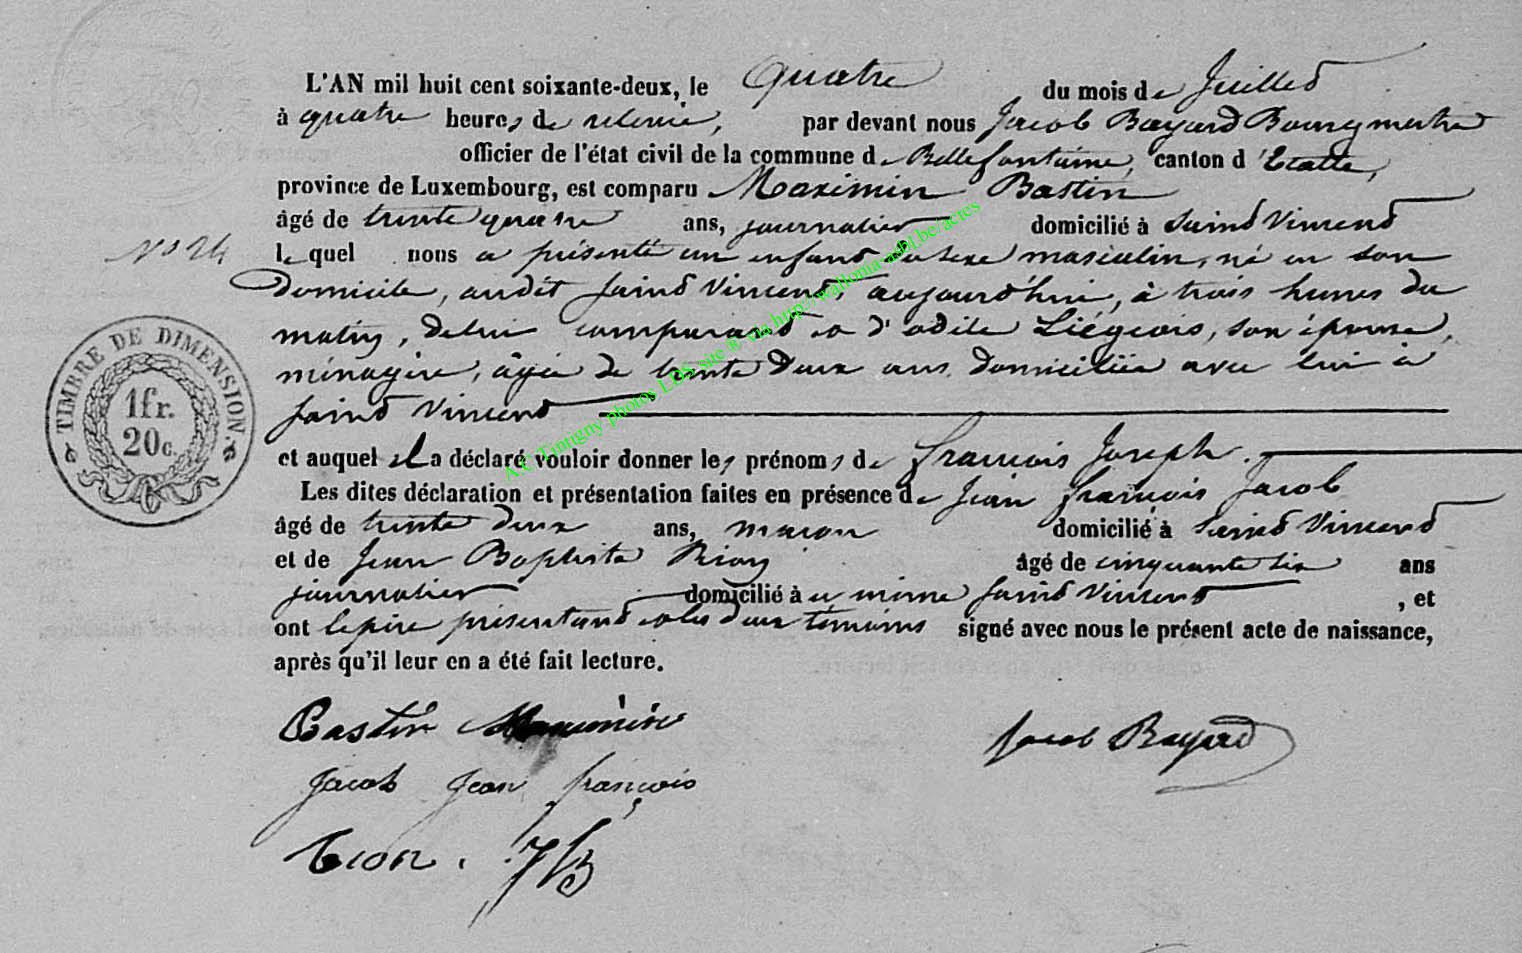 L'AN mil huit cent soixante-deux, le quatre du mois de Juillet
à quatre heures de relevée, par devant nous Jacob Bayard Bourgmestre
officier de l'état civil de la commune de Bellefontaine, canton d'Etalle,
province de Luxembourg, est comparu Maximin Bastin
âgé de trente quatre ans, journalier domicilié à Saint Vincent
N° 24 lequel nous a présenté un enfant du sexe masculin, né en son
Domicile, audit Saint Vincent, aujourd'hui, à trois heures du
matin, de lui comparant et d'Odile Liégeois, son épouse,
ménagère, âgée de trente deux ans, domiciliée avec lui à
Saint Vincent
et auquel il a déclaré vouloir donner les prénoms de François Joseph.
Les dites déclaration et présentation faites en présence de Jean François Jacob
âgé de trente deux ans, maçon domicilié à Saint Vincent
et de Jean Baptiste âgé de cinquante six ans
journalier domicilié à ce même Saint Vincent, et
ont le père présentant et les deux témoins signé avec nous le présent acte de naissance,
après qu'il leur en a été fait lecture.
TIMBRE DE DIMENSION
1fr.
20c.
A.C Tintigny photos LDS site & via http://wallonia-asbl.be/actes
Bastin Maximin
Jacob Bayard
Jacob Jean François
JB